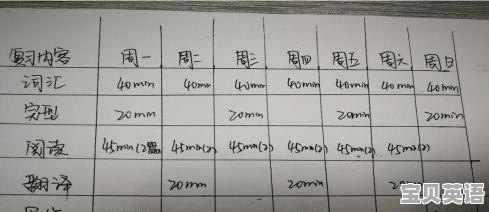 复习内容 周一 周二 周三 周四 周五 周六 周日
词汇 40min 40min 40min 40min 40min 40min 40min
完型 20min 20min 20min 20min
阅读 45min(2篇) 45min(2) 45min(2) 45min(2) 45min(2) 45min(2)
翻译 20min 20min 20
宝贝英语